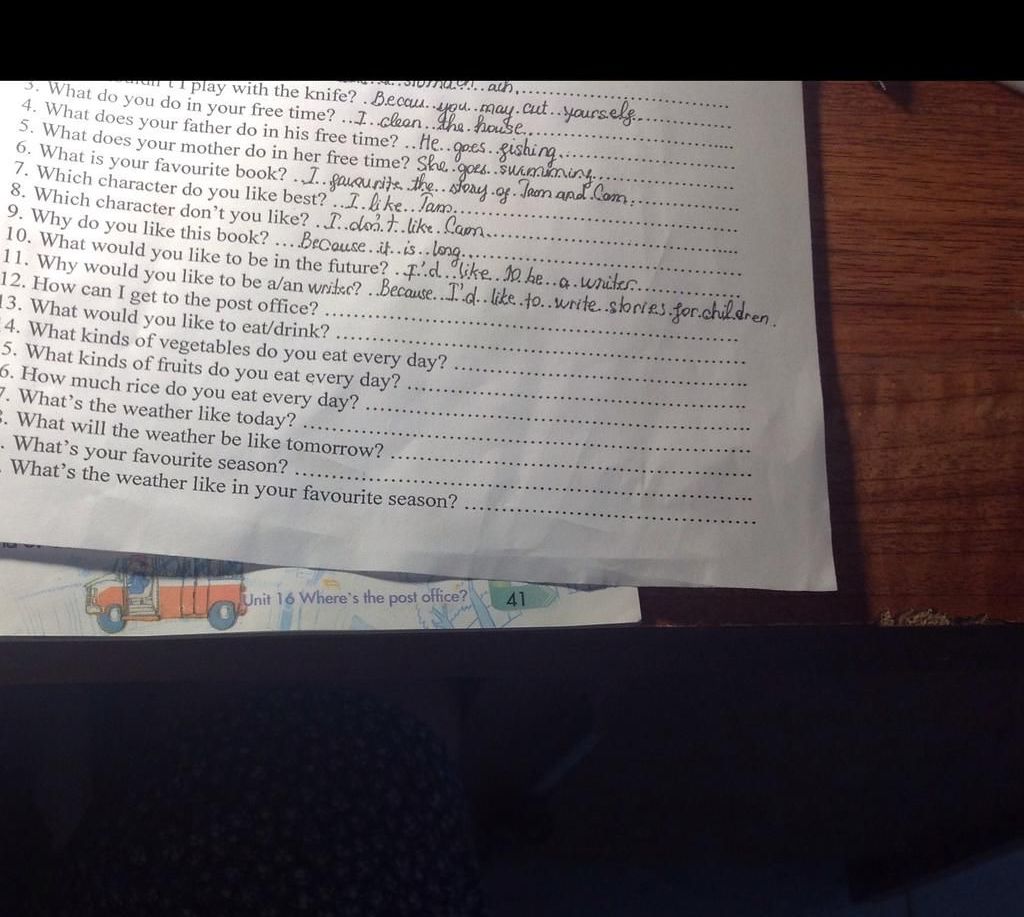 play with the knife? .Becau..you..may.cut..yourself..
3. What do you do in your free time? ...I..clean..the.house..
4. What does your father do in his free time? ..He..goes..fishing..
5. What does your mother do in her free time? She.goes..swimming..
6. What is your favourite book? ..I..favourite.the..story.of.Tam and Cam.
7. Which character do you like best? ..I.like..Tam..
8. Which character don't you like? .I..don't.like.Cam..
9. Why do you like this book? ...Because..it..is..long..
10. What would you like to be in the future? ..I'd..like..to.be..a..writer..
11. Why would you like to be a/an writer? ..Because..I'd..like.to..write..stories.for.children.
12. How can I get to the post office? ..........
13. What would you like to eat/drink? ..........
4. What kinds of vegetables do you eat every day? ..........
5. What kinds of fruits do you eat every day? ..........
6. How much rice do you eat every day? ..........
7. What's the weather like today? ..........
8. What will the weather be like tomorrow? ..........
. What's your favourite season? ..........
. What's the weather like in your favourite season? ..........
Unit 16 Where's the post office? 41